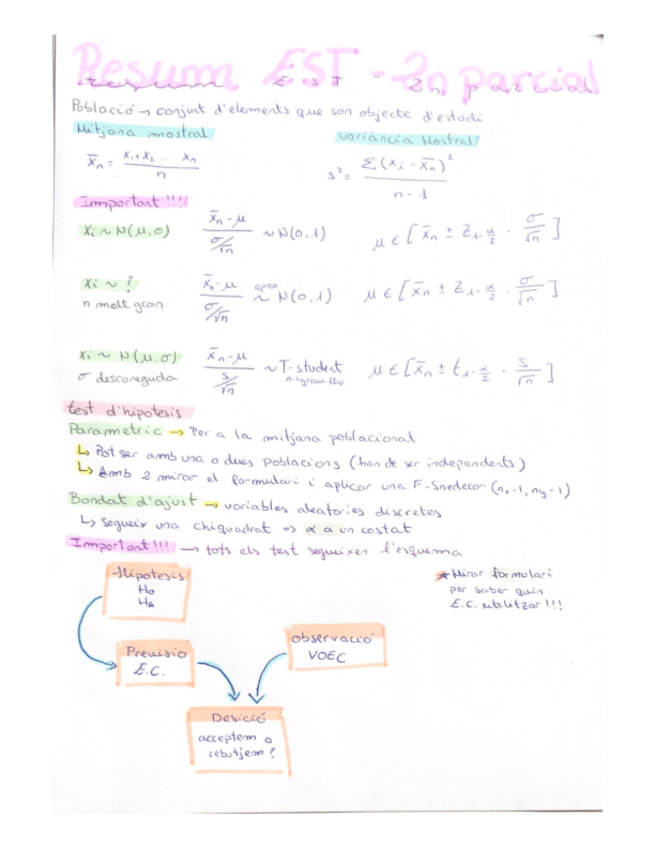 Resum EST - 2n parcial
Població → conjunt d'elements que son objecte d'estudi
Mitjana mostral
Variància Mostral
x̄n = x1+x2 ... xn / n
s² = Σ(xi - x̄n)² / n-1
Important!!!
xi ~ N(μ,σ)
x̄n-μ / σ/√n ~ N(0,1)
μ ∈ [x̄n ± Z1-α/2 · σ/√n]
xi ~ ?
n molt gran
x̄n-μ / σ/√n aprox ~ N(0,1)
μ ∈ [x̄n ± Z1-α/2 · σ/√n]
xi ~ N(μ,σ)
σ desconeguda
x̄n-μ / s/√n ~ T-student
n-1 graus
μ ∈ [x̄n ± t1-α/2 · s/√n]
test d'hipotesis
Parametric → Per a la mitjana poblacional
↳ Pot ser amb una o dues poblacions (han de ser independents)
↳ Amb 2 mirar el formulari i aplicar una F-Snedecor (nx-1, ny-1)
Bondat d'ajust → variables aleatories discretes
↳ Segueix una chiquadrat => α a un costat
Important!!! → tots els test segueixen l'esquema
Hipotesis
Ho
HA
* Mirar formulari
per saber quin
E.C. utilitzar!!!
Previsio
E.C.
observació
VOEC
Desició
acceptem o
rebutjem?